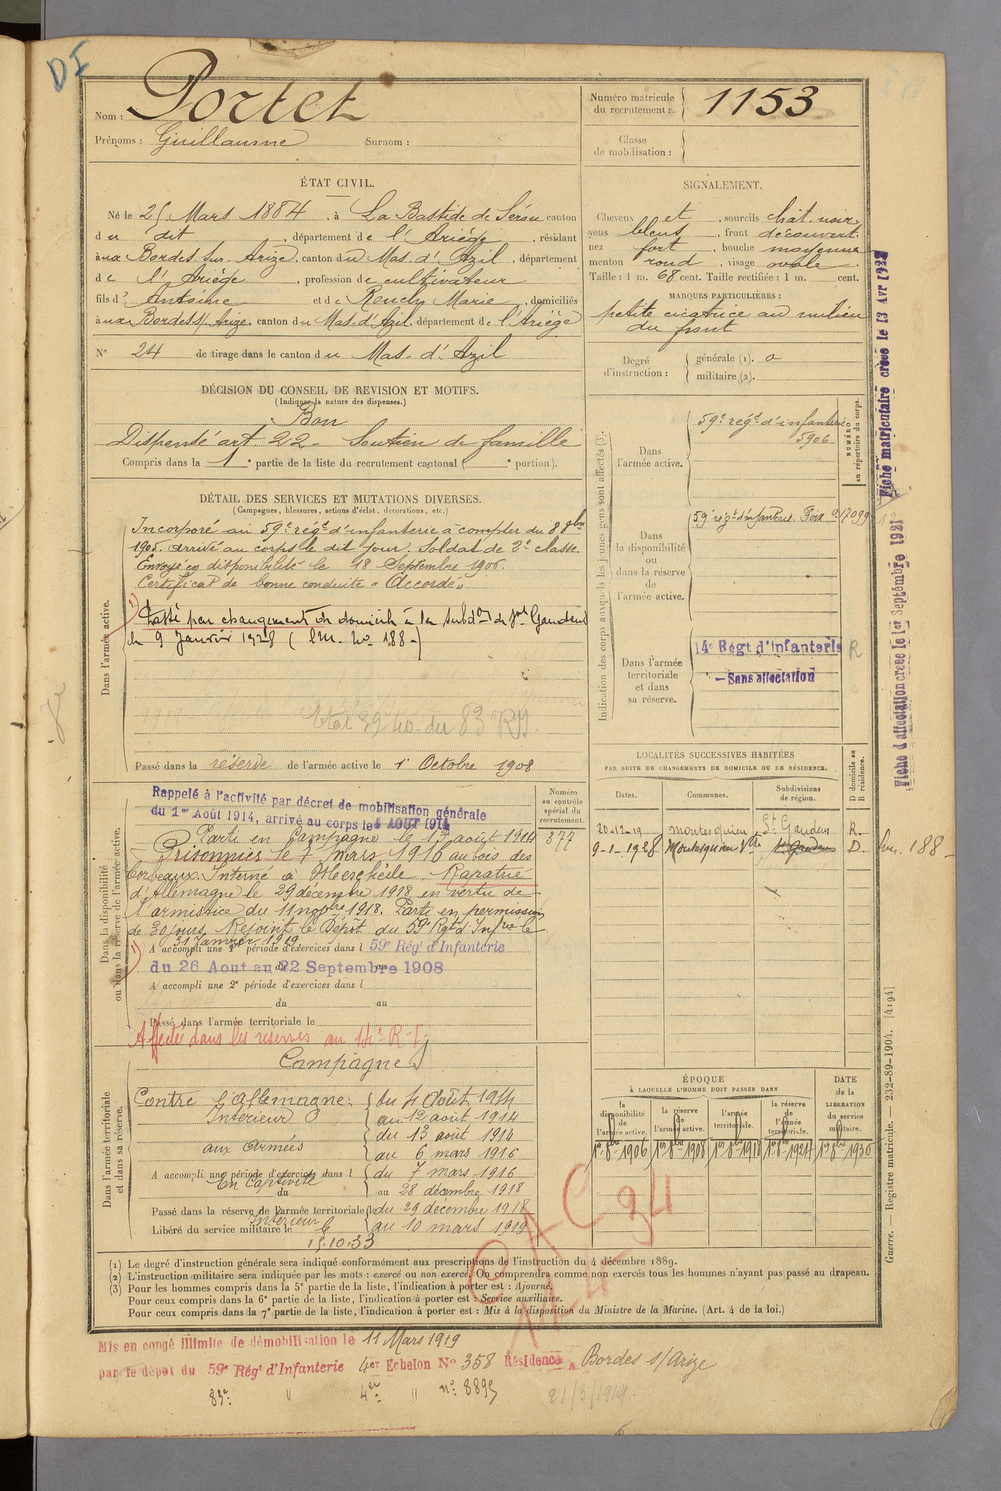 DI
Nom : Portet
Prénoms : Guillaume Surnom :
Numéro matricule du recrutement : 1153
Classe de mobilisation :
ÉTAT CIVIL.
Né le 25 Mars 1884, à La Bastide de Sérou canton
du dit, département de l'Ariège, résidant
à aux Bordes-sur-Arize, canton du Mas-d'Azil, département
de l'Ariège, profession de cultivateur
fils d' Antoine et de Rouch Marie, domiciliés
à aux Bordes s/ Arize, canton du Mas-d'Azil, département de l'Ariège
N° 24 de tirage dans le canton du Mas-d'Azil
SIGNALEMENT.
Cheveux et, sourcils chât. noir,
yeux bleus, front découvert,
nez fort, bouche moyenne
menton rond, visage ovale
Taille : 1 m. 68 cent. Taille rectifiée : 1 m. cent.
MARQUES PARTICULIÈRES :
petite cicatrice au milieu
du front
Degré d'instruction : générale (1). a
militaire (2).
DÉCISION DU CONSEIL DE REVISION ET MOTIFS.
(Indiquer la nature des dispenses.)
Bon
Dispensé art 22 - Soutien de famille
Compris dans la 1e partie de la liste du recrutement cantonal ( portion).
DÉTAIL DES SERVICES ET MUTATIONS DIVERSES.
(Campagnes, blessures, actions d'éclat, décorations, etc.)
Dans l'armée active.
Incorporé au 59e régt d'infanterie à compter du 8 8bre
1905. arrivé au corps le dit jour. Soldat de 2e classe.
Envoyé en disponibilité le 18 Septembre 1906.
Certificat de bonne conduite "Accordé"
Passé par changement de domicile à la Subdon de St Gaudens
le 9 Janvier 1928 (bul. No. 188-)
Etat 39-40 du 83e RI
Passé dans la réserve de l'armée active le 1r Octobre 1908
Indication des corps auxquels les jeunes gens sont affectés (3).
NUMÉRO au répertoire du corps.
Dans l'armée active.
59e régt d'infanterie
5906
Dans la disponibilité ou dans la réserve de l'armée active.
59e régt d'infanterie Foix 17099
Dans l'armée territoriale et dans sa réserve.
14e Régt d'Infanterie R
— Sans affectation
Dans la disponibilité ou dans la réserve de l'armée active.
Numéro au contrôle spécial du recrutement.
877
Rappelé à l'activité par décret de mobilisation générale
du 1er Août 1914, arrivé au corps le 4 AOUT 1914
Parti en Campagne le 13 août 1914
Prisonnier le 7 mars 1916 au bois des
Corbeaux. Interné à Meschede. Rapatrié
d'Allemagne le 29 décembre 1918 en vertu de
l'armistice du 11 novbre 1918. Parti en permission
de 30 jours. Rejoint le Dépôt du 59e Rgt d'Infrie le
31 Janvier 1919
A accompli une 1re période d'exercices dans l 59e Rég' d'Infanterie
du 26 Aout au 22 Septembre 1908
A accompli une 2e période d'exercices dans l
du au
Passé dans l'armée territoriale le
Affecté dans les réserves au 14e R-I.
LOCALITÉS SUCCESSIVES HABITÉES
PAR SUITE DE CHANGEMENTS DE DOMICILE OU DE RÉSIDENCE.
Dates. Communes. Subdivisions de région. D domicile ou R résidence.
20-12-19 Montesquieu St Gaudens R.
9-1-1928 Montesquieu Vtre St Gaudens D. bul. 188-
Dans l'armée territoriale et dans sa réserve.
Campagnes
Contre l'Allemagne : du 4 Août 1914
Intérieur au 12 août 1914
du 13 août 1914
aux Armées au 6 mars 1916
A accompli une période d'exercices dans l du 7 mars 1916
En Captivité
du au 28 décembre 1918
Passé dans la réserve de l'armée territoriale le du 29 décembre 1918
Intérieur
Libéré du service militaire le au 10 mars 1919
15.10.33
ÉPOQUE
À LAQUELLE L'HOMME DOIT PASSER DANS
la disponibilité de l'armée active.
la réserve de l'armée active.
l'armée territoriale.
la réserve de l'armée territoriale.
DATE de la LIBÉRATION du service militaire.
1er 8bre 1906 1er 8bre 1908 1er 8bre 1918 1er 8bre 1924 1er 8bre 1930
CAC 34
(1) Le degré d'instruction générale sera indiqué conformément aux prescriptions de l'instruction du 4 décembre 1889.
(2) L'instruction militaire sera indiquée par les mots : exercé ou non exercé. On comprendra comme non exercés tous les hommes n'ayant pas passé au drapeau.
(3) Pour les hommes compris dans la 5e partie de la liste, l'indication à porter est : Ajourné.
Pour ceux compris dans la 6e partie de la liste, l'indication à porter est : Service auxiliaire.
Pour ceux compris dans la 7e partie de la liste, l'indication à porter est : Mis à la disposition du Ministre de la Marine. (Art. 4 de la loi.)
Mis en congé illimité de démobilisation le 11 Mars 1919
par le dépôt du 59e Rég' d'Infanterie 4er Echelon N° 358 Résidence à Bordes s/Arize
83e " 4er " no. 8895 21/3/1919
Fiche matriculaire créée le 13 Avr 1922
Fiche d'affectation créée le 1er Septembre 1921
Guerre. — Registre matricule. — 232-89-1904. [4194]